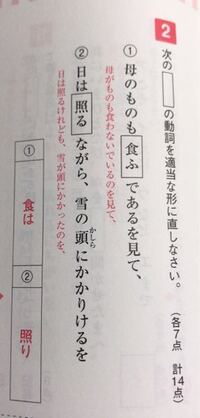 2 次の□の動詞を適当な形に直しなさい。(各7点 計14点)
① 母のものも食ふであるを見て、
母がものも食わないでいるのを見て、
② 日は照るながら、雪の頭にかかりけるを
かしら
日は照るけれども、雪が頭にかかったのを、
① 食は
② 照り